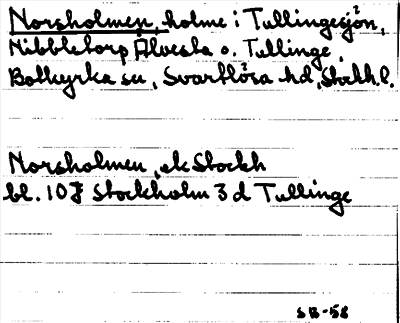 Norsholmen, holme i Tullingesjön,
Nibbletorp Älvesta o. Tullinge,
Botkyrka sn, Svartlösa hd, Stockh.l.
Norsholmen, ek Stockh
bl. 10J Stockholm 3d Tullinge
SB-58